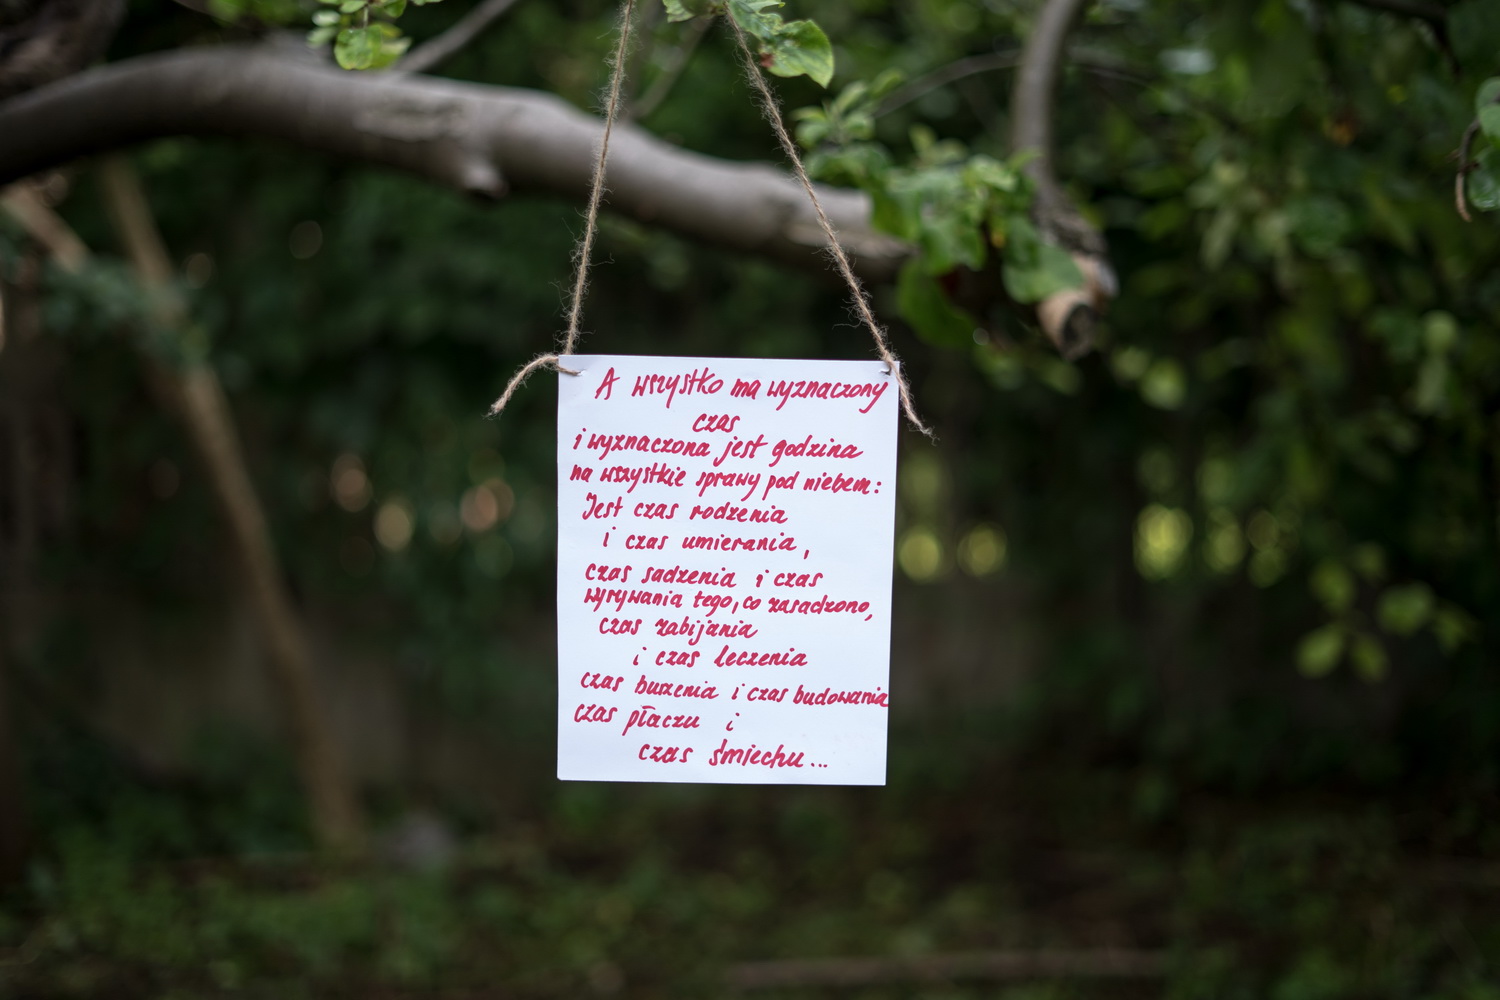 A wszystko ma wyznaczony
czas
i wyznaczona jest godzina
na wszystkie sprawy pod niebem:
Jest czas rodzenia
i czas umierania,
czas sadzenia i czas
wyrywania tego, co zasadzono,
czas zabijania
i czas leczenia
czas burzenia i czas budowania
czas płaczu i
czas śmiechu...